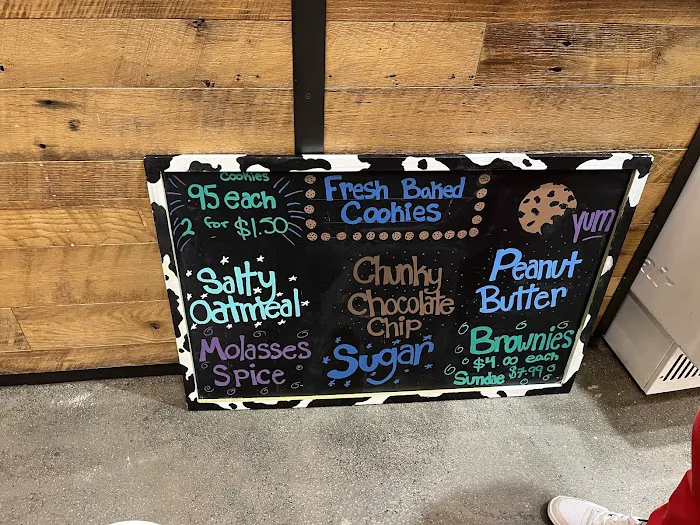 Cookies
95 each
2 for $1.50
Fresh Baked
Cookies
yum
Salty
Oatmeal
Chunky
Chocolate
Chip
Peanut
Butter
Molasses
Spice
Sugar
Brownies
$4.00 each
Sundae $7.99